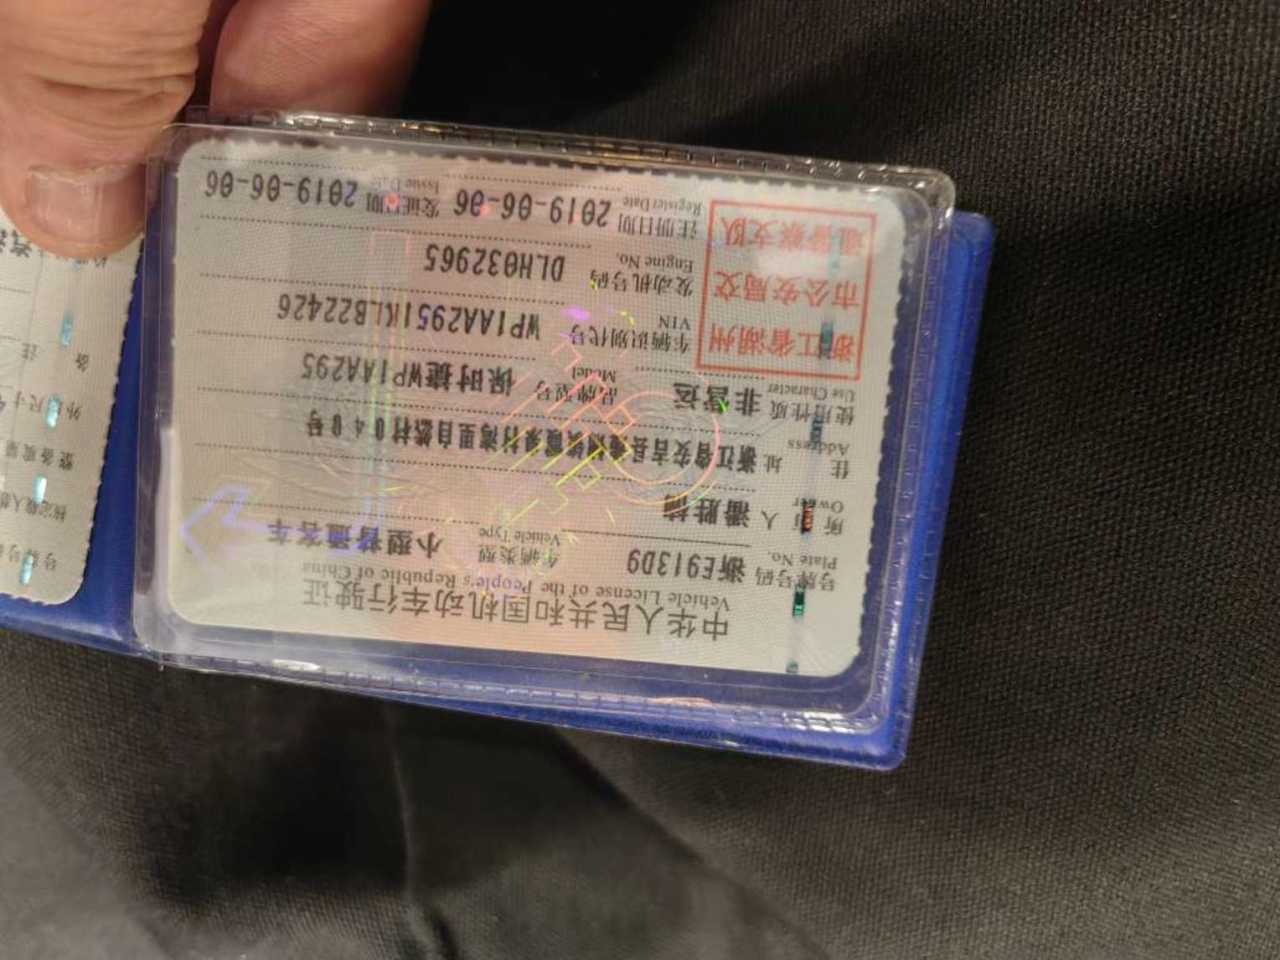 中华人民共和国机动车行驶证
Vehicle License of the People's Republic of China
号牌号码 浙E913D9 车辆类型 小型普通客车
Plate No. Vehicle Type
所有人 潘胜
Owner
住址 浙江省安吉县 村湾里自然村040号
Address
使用性质 非营运 品牌型号 保时捷WP1AA295
Use Character Model
浙江省湖州
市公安局交
通警察支队
车辆识别代号 WP1AA2951KLB22426
VIN
发动机号码 DLH032965
Engine No.
注册日期 2019-06-06 发证日期 2019-06-06
Register Date Issue Date
号牌号
核定载人
整备质量
外廓尺寸
备 注